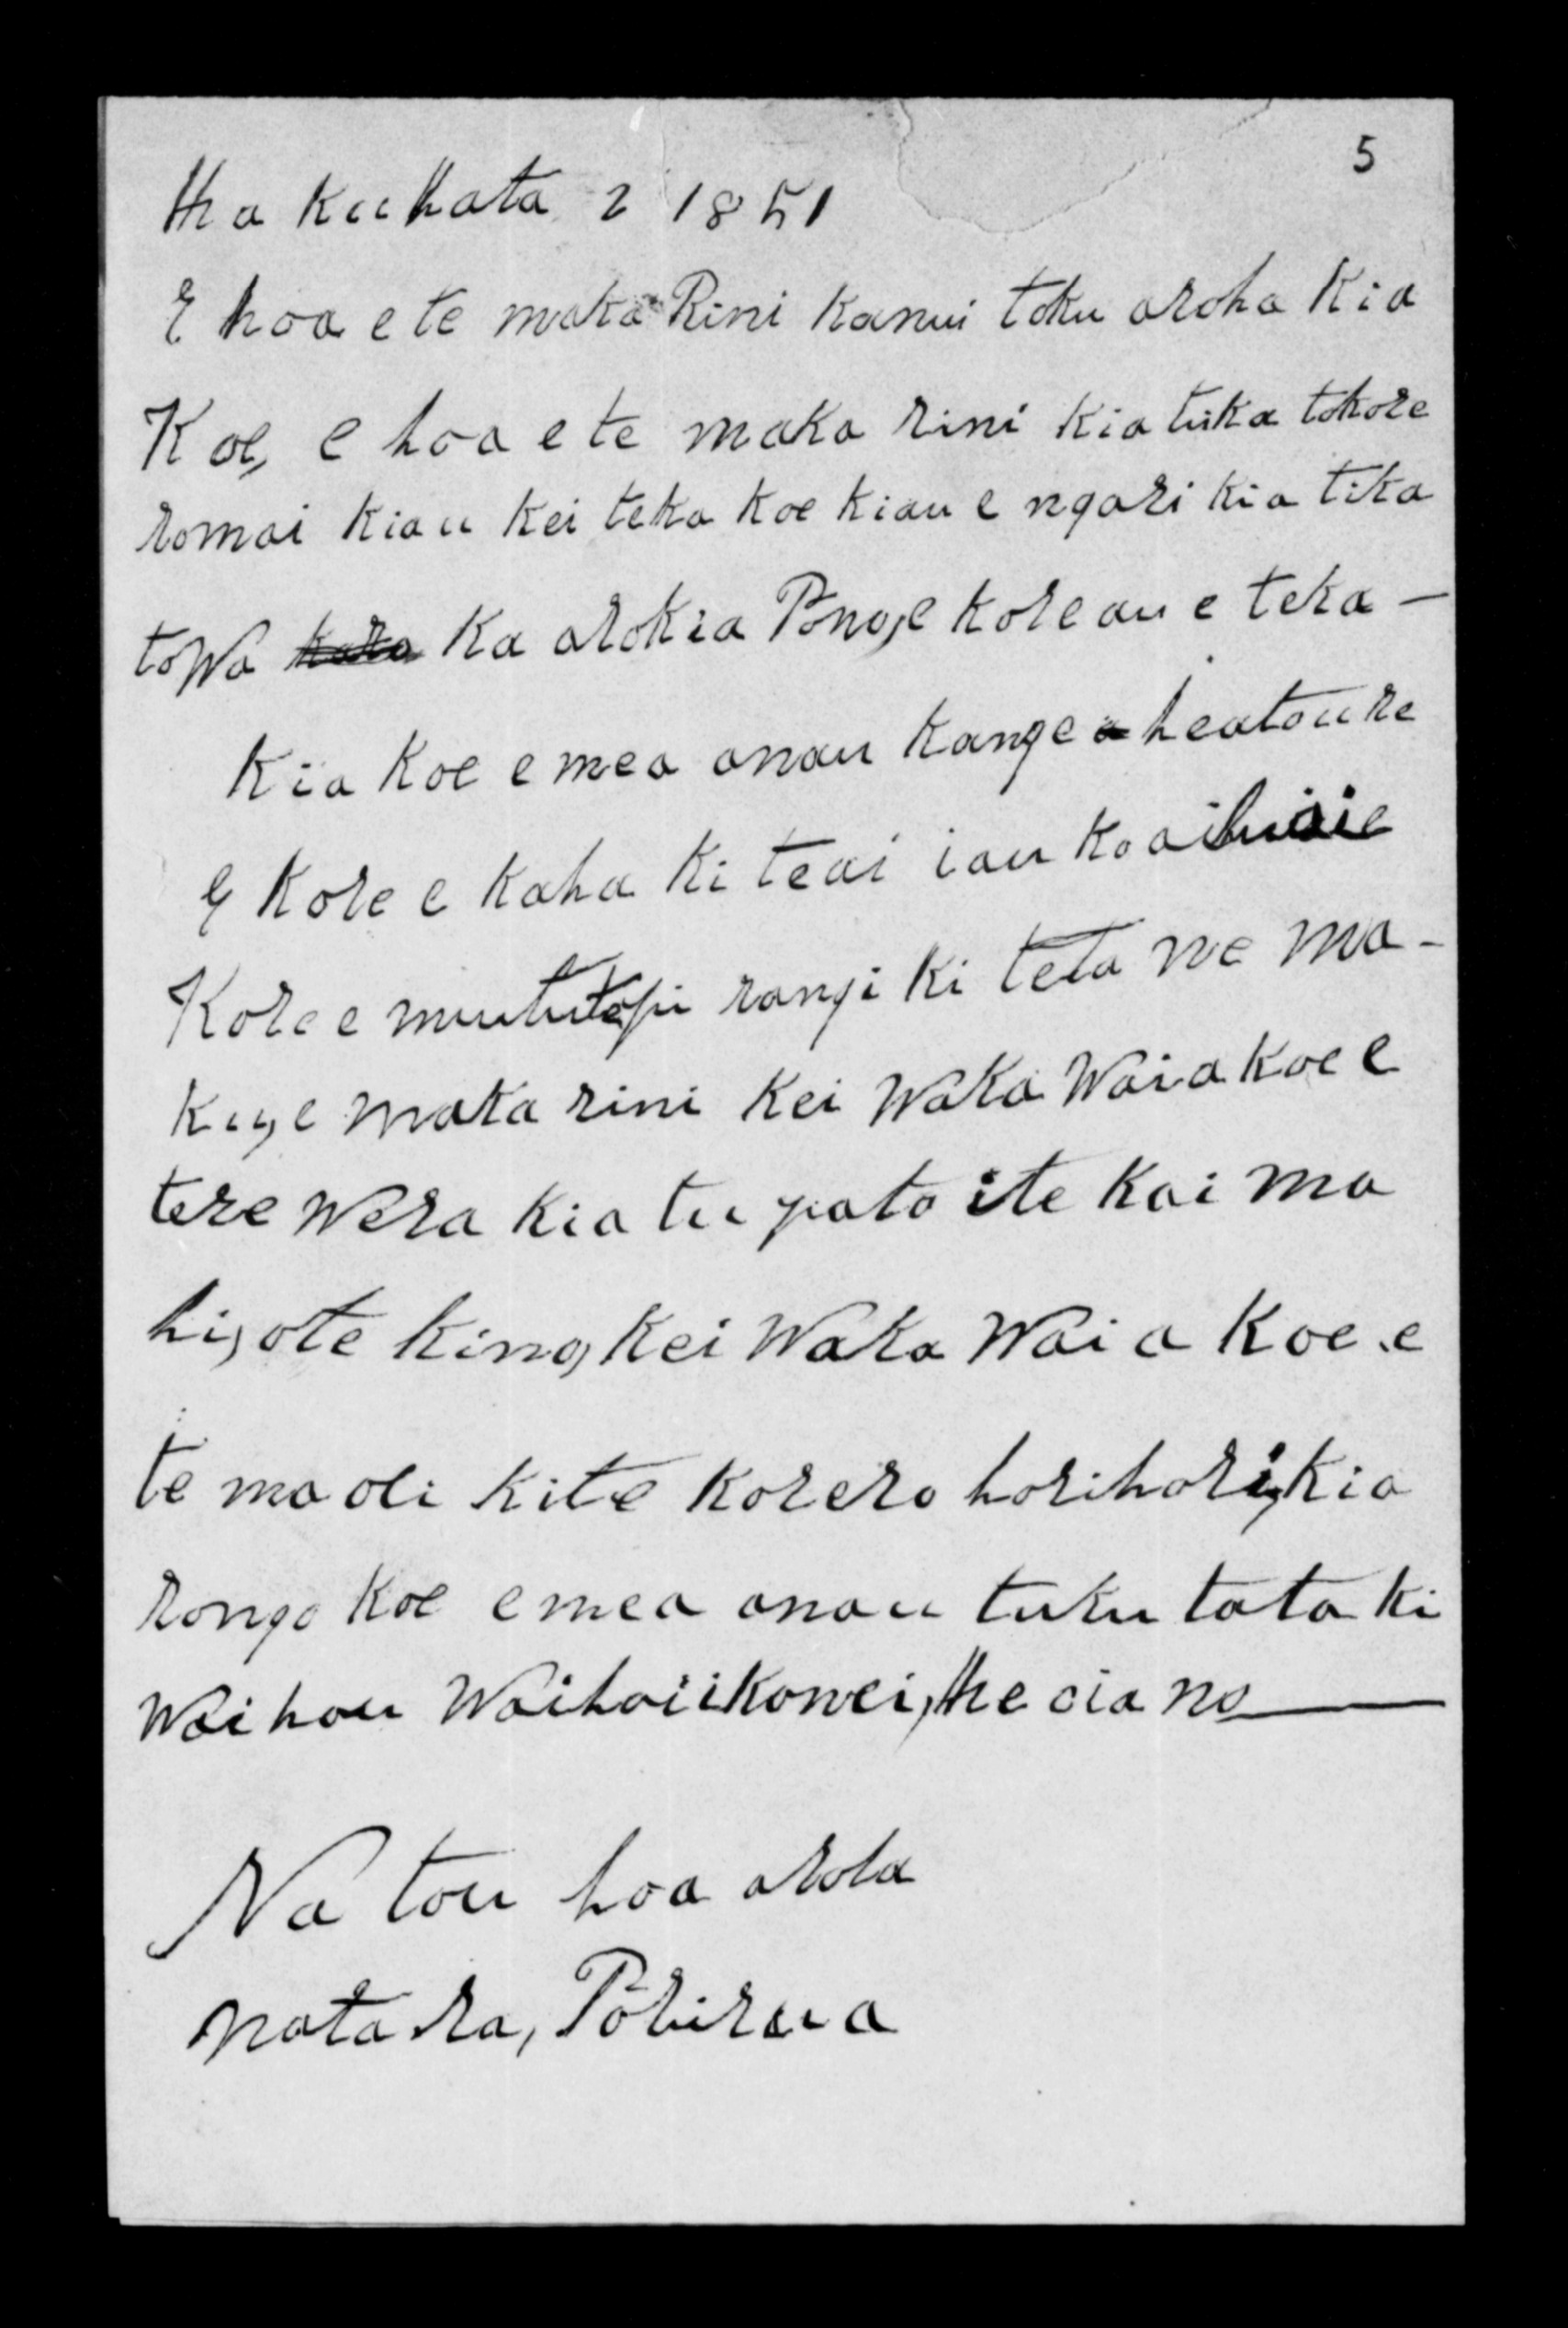 5
Ha Kuuhata 2 1851
E hoa e te maka Rini Kanui toku aroha Kia
Koe, e hoa e te maka rini Kia tika tokore
romai Kiau Kei teka Koe Kiau e ngari kia tika
towa Ka arokia Pono, e kore au e teka —
Kia Koe e mea anau Kange heatoure
E Kore e Kaha Ki teai iau Koa
Kore e rangi Ki teta ne ma -
Ku, e maka rini Kei Waka Waia Koe e
tere Wera Kia tu pato ite Kai ma
hi, ote Kino, Kei Waka Wai a Koe. e
te maoli Kite Korero horihori, kia
rongo Koe e mea anau tuku tata ki
Waihou Waihoiikonei, He oia no
Na tou hoa arola
nata ra, Porirua